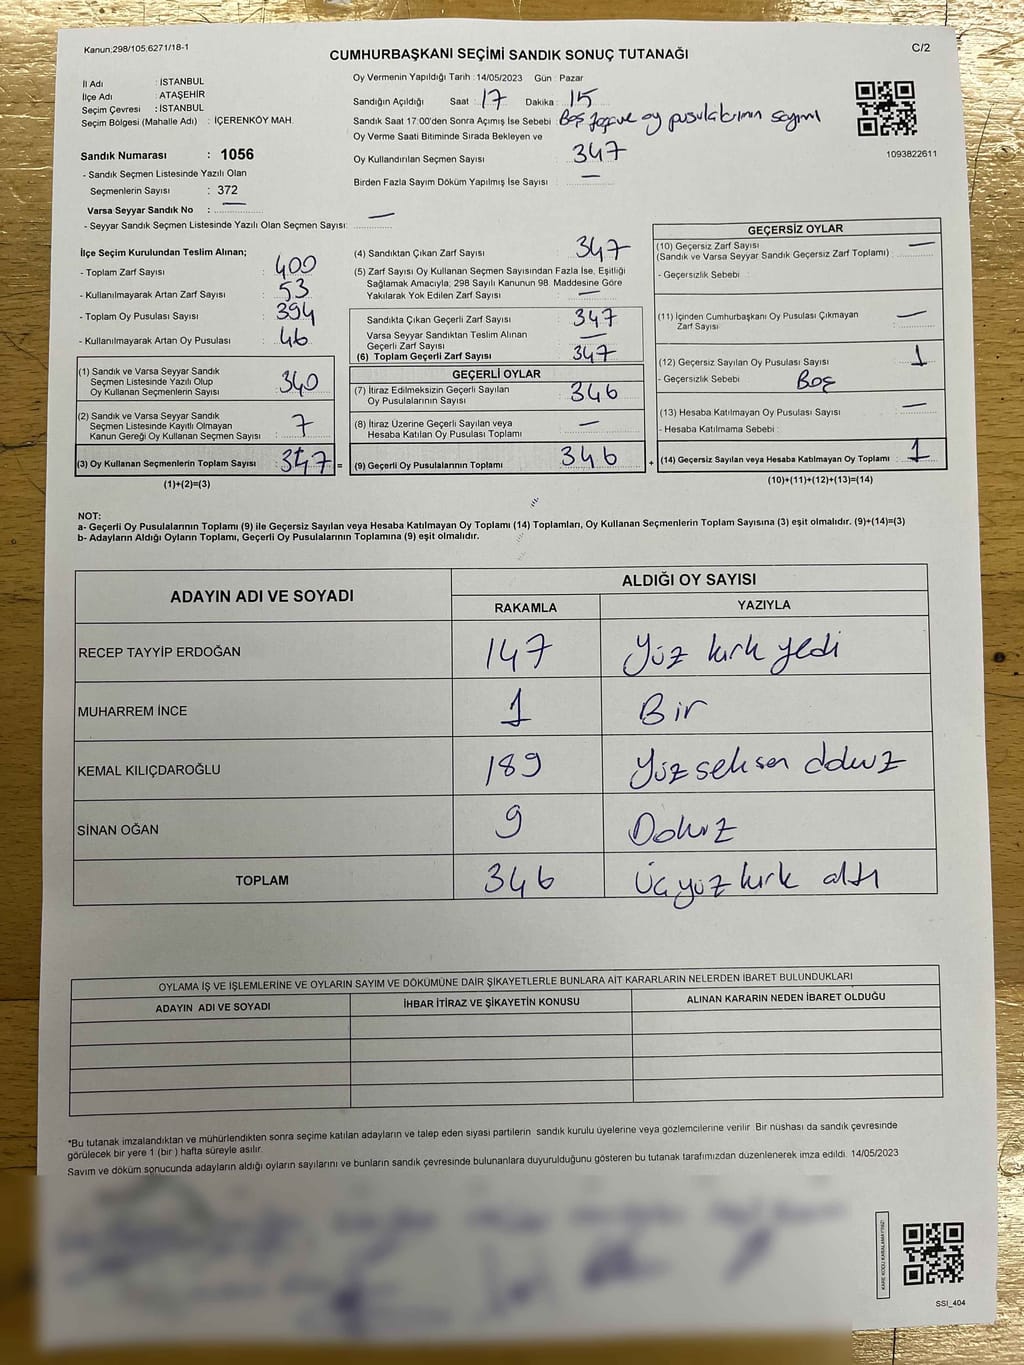 Kanun;298/105;6271/18-1
C/2
CUMHURBAŞKANI SEÇİMİ SANDIK SONUÇ TUTANAĞI
İl Adı : İSTANBUL
İlçe Adı : ATAŞEHİR
Seçim Çevresi : İSTANBUL
Seçim Bölgesi (Mahalle Adı) : İÇERENKÖY MAH.
Sandık Numarası : 1056
- Sandık Seçmen Listesinde Yazılı Olan
Seçmenlerin Sayısı : 372
Varsa Seyyar Sandık No : —
- Seyyar Sandık Seçmen Listesinde Yazılı Olan Seçmen Sayısı: —
Oy Vermenin Yapıldığı Tarih : 14/05/2023 Gün : Pazar
Sandığın Açıldığı Saat : 17 Dakika : 15
Sandık Saat 17:00'den Sonra Açımış İse Sebebi : Boş zarf ve oy pusulalarının sayımı
Oy Verme Saati Bitiminde Sırada Bekleyen ve
Oy Kullandırılan Seçmen Sayısı 347
Birden Fazla Sayım Döküm Yapılmış İse Sayısı : —
1093822611
İlçe Seçim Kurulundan Teslim Alınan;
- Toplam Zarf Sayısı : 400
- Kullanılmayarak Artan Zarf Sayısı : 53
- Toplam Oy Pusulası Sayısı : 394
- Kullanılmayarak Artan Oy Pusulası : 46
(1) Sandık ve Varsa Seyyar Sandık
Seçmen Listesinde Yazılı Olup
Oy Kullanan Seçmenlerin Sayısı : 340
(2) Sandık ve Varsa Seyyar Sandık
Seçmen Listesinde Kayıtlı Olmayan
Kanun Gereği Oy Kullanan Seçmen Sayısı : 7
(3) Oy Kullanan Seçmenlerin Toplam Sayısı : 347 =
(1)+(2)=(3)
(4) Sandıktan Çıkan Zarf Sayısı : 347
(5) Zarf Sayısı Oy Kullanan Seçmen Sayısından Fazla İse, Eşitliği
Sağlamak Amacıyla; 298 Sayılı Kanunun 98. Maddesine Göre
Yakılarak Yok Edilen Zarf Sayısı : —
Sandıkta Çıkan Geçerli Zarf Sayısı : 347
Varsa Seyyar Sandıktan Teslim Alınan
Geçerli Zarf Sayısı : —
(6) Toplam Geçerli Zarf Sayısı : 347
GEÇERLİ OYLAR
(7) İtiraz Edilmeksizin Geçerli Sayılan
Oy Pusulalarının Sayısı : 346
(8) İtiraz Üzerine Geçerli Sayılan veya
Hesaba Katılan Oy Pusulası Toplamı : —
(9) Geçerli Oy Pusulalarının Toplamı : 346 +
GEÇERSİZ OYLAR
(10) Geçersiz Zarf Sayısı
(Sandık ve Varsa Seyyar Sandık Geçersiz Zarf Toplamı) : —
- Geçersizlik Sebebi :
(11) İçinden Cumhurbaşkanı Oy Pusulası Çıkmayan
Zarf Sayısı : —
(12) Geçersiz Sayılan Oy Pusulası Sayısı : 1
- Geçersizlik Sebebi : Boş
(13) Hesaba Katılmayan Oy Pusulası Sayısı : —
- Hesaba Katılmama Sebebi :
(14) Geçersiz Sayılan veya Hesaba Katılmayan Oy Toplamı : 1
(10)+(11)+(12)+(13)=(14)
NOT:
a- Geçerli Oy Pusulalarının Toplamı (9) ile Geçersiz Sayılan veya Hesaba Katılmayan Oy Toplamı (14) Toplamları, Oy Kullanan Seçmenlerin Toplam Sayısına (3) eşit olmalıdır. (9)+(14)=(3)
b- Adayların Aldığı Oyların Toplamı, Geçerli Oy Pusulalarının Toplamına (9) eşit olmalıdır.
ADAYIN ADI VE SOYADI ALDIĞI OY SAYISI
RAKAMLA YAZIYLA
RECEP TAYYİP ERDOĞAN 147 Yüz kırk yedi
MUHARREM İNCE 1 Bir
KEMAL KILIÇDAROĞLU 189 Yüz seksen dokuz
SİNAN OĞAN 9 Dokuz
TOPLAM 346 Üçyüz kırk altı
OYLAMA İŞ VE İŞLEMLERİNE VE OYLARIN SAYIM VE DÖKÜMÜNE DAİR ŞİKAYETLERLE BUNLARA AİT KARARLARIN NELERDEN İBARET BULUNDUKLARI
ADAYIN ADI VE SOYADI İHBAR İTİRAZ VE ŞİKAYETİN KONUSU ALINAN KARARIN NEDEN İBARET OLDUĞU
*Bu tutanak imzalandıktan ve mühürlendikten sonra seçime katılan adayların ve talep eden siyasi partilerin sandık kurulu üyelerine veya gözlemcilerine verilir. Bir nüshası da sandık çevresinde
görülecek bir yere 1 (bir ) hafta süreyle asılır.
Sayım ve döküm sonucunda adayların aldığı oyların sayılarını ve bunların sandık çevresinde bulunanlara duyurulduğunu gösteren bu tutanak tarafımızdan düzenlenerek imza edildi. 14/05/2023
KARE KODU KARALAMAYINIZ!
SSI_404